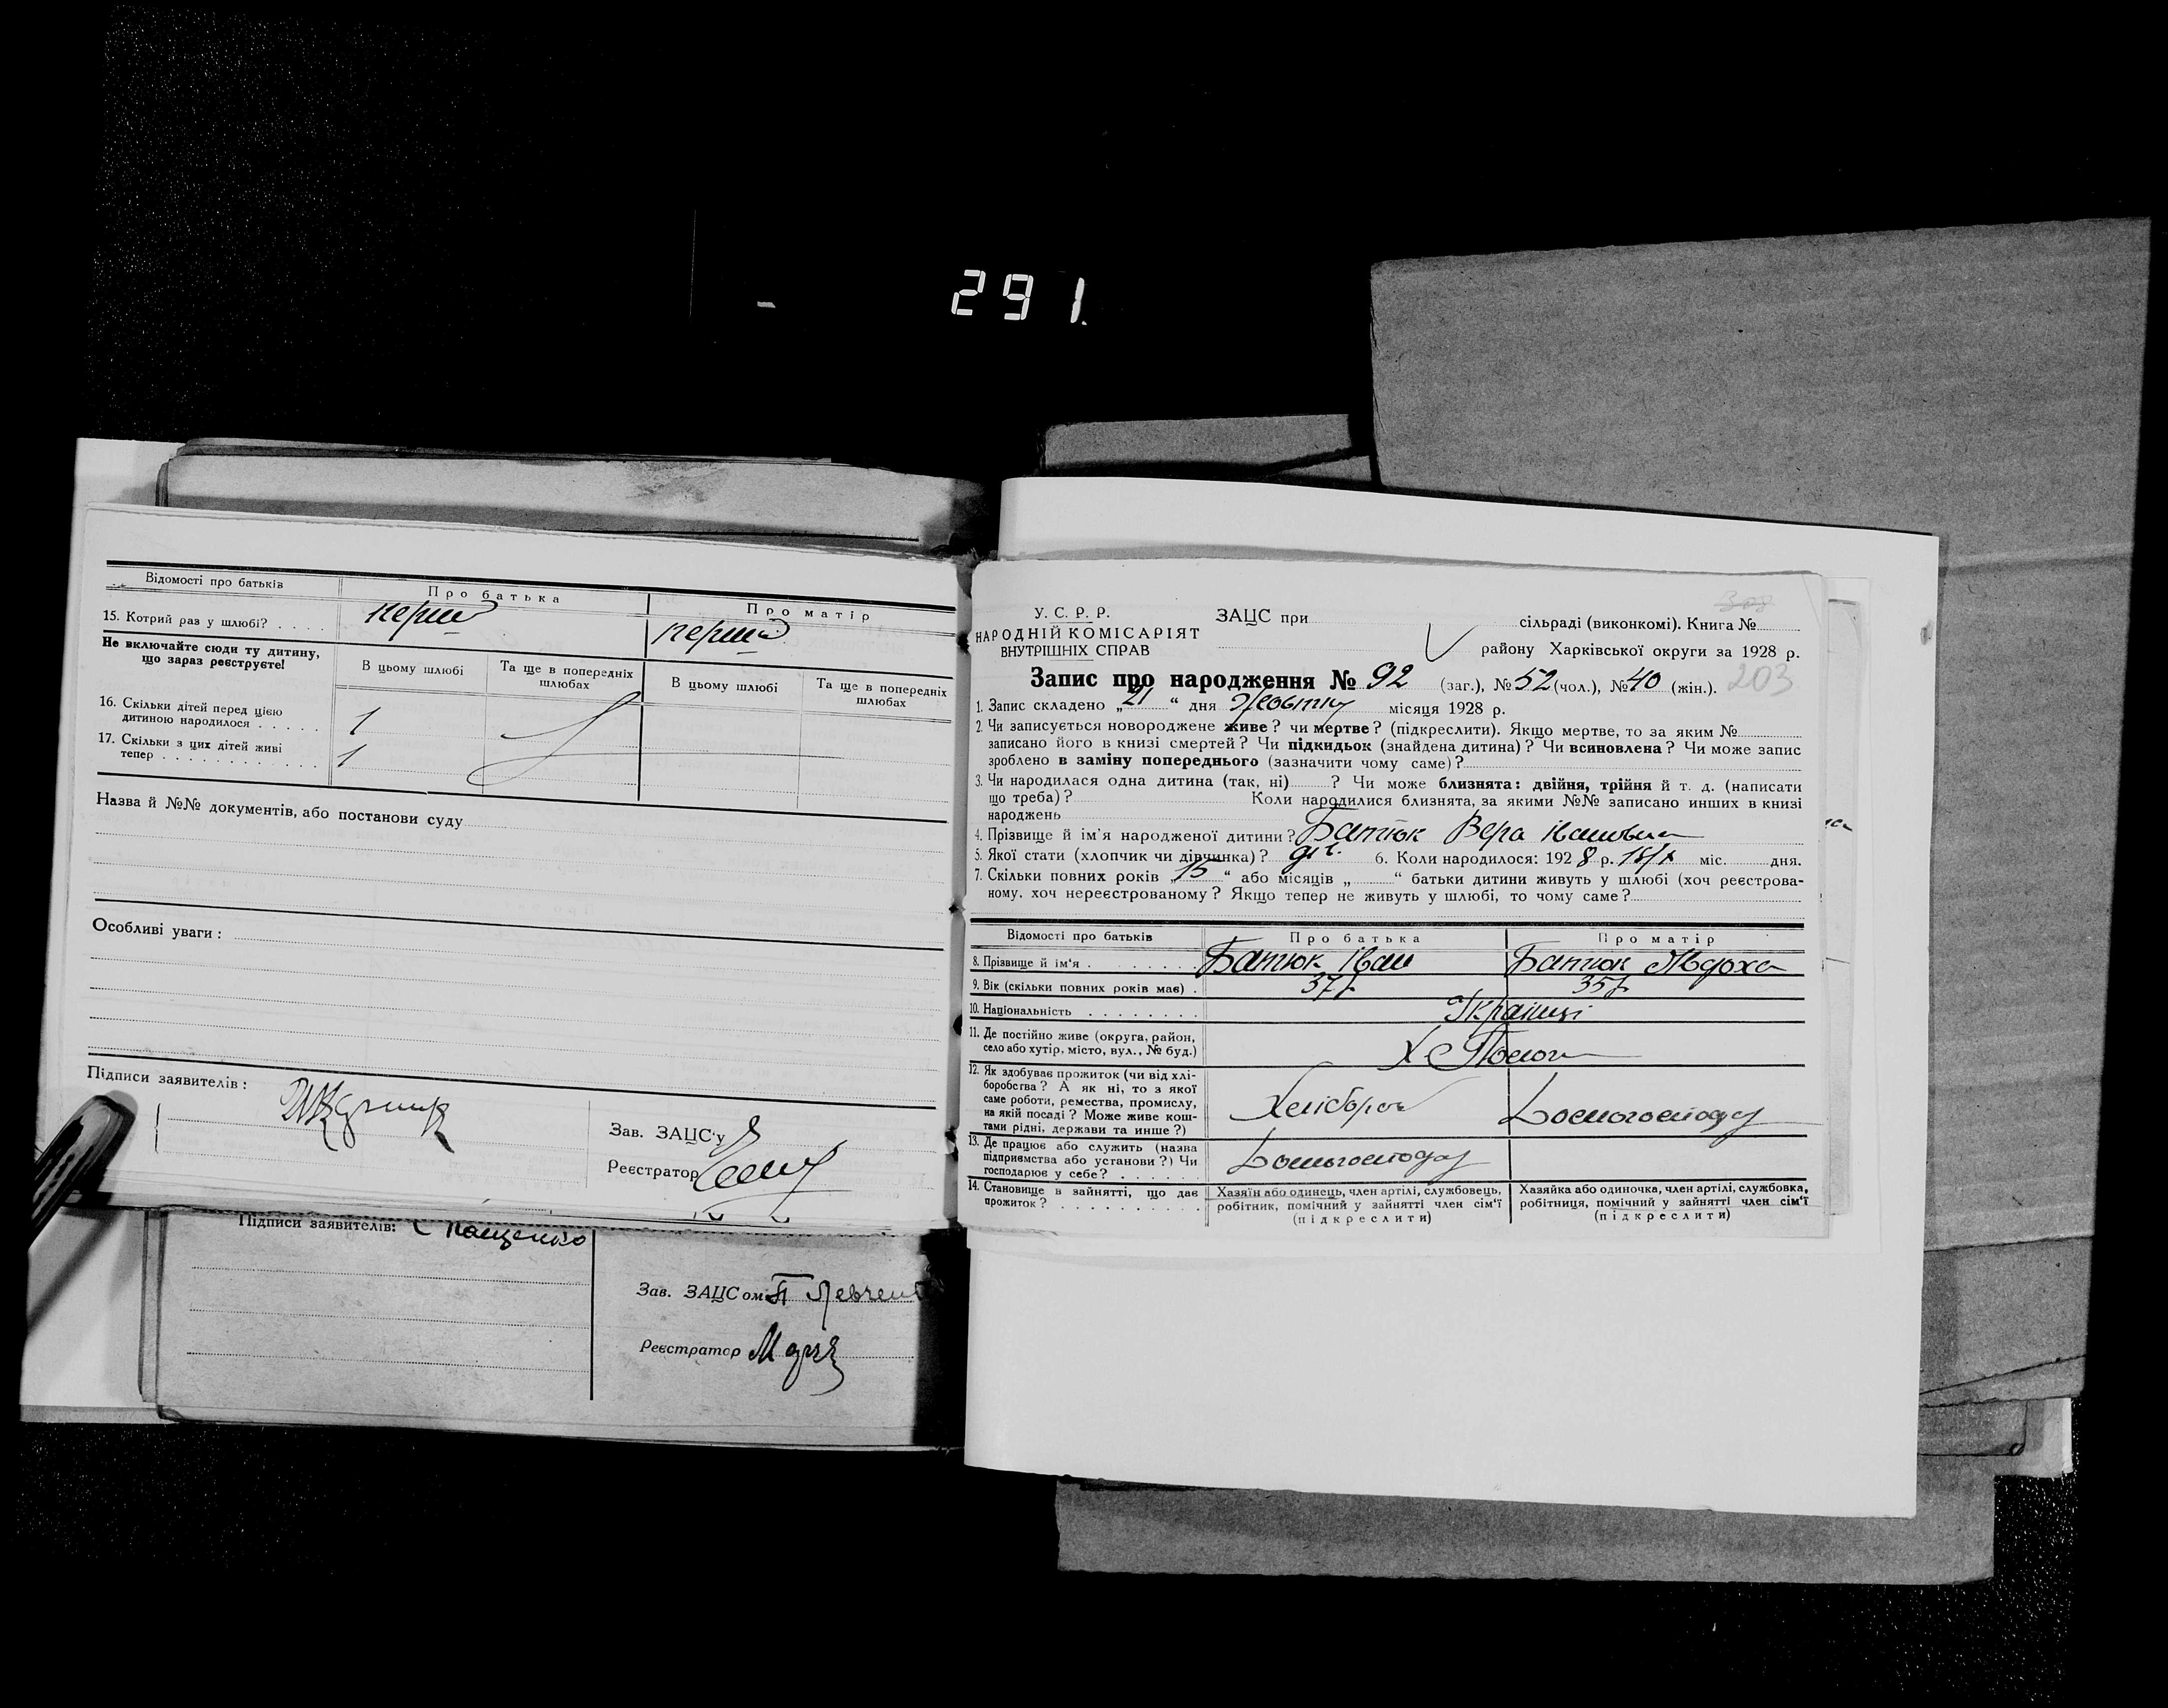 291.
Відомості про батьків
Про батька
Про матір
15. Котрий раз у шлюбі? . . . .
перш
перша
Не включайте сюди ту дитину,
що зараз реєструєте!
В цьому шлюбі
Та ще в попередніх
шлюбах
В цьому шлюбі
Та ще в попередніх
шлюбах
16. Скільки дітей перед цією
дитиною народилося . . . . .
1
17. Скільки з цих дітей живі
тепер . . . . . . . . . . . .
1
Назва й №№ документів, або постанови суду
Особливі уваги :
Підписи заявителів :
Зав. ЗАЦС'у
Реєстратор
Підписи заявителів:
Пащенко
Зав. ЗАЦСом
Реєстратор
У. С. Р. Р.
НАРОДНІЙ КОМІСАРІЯТ
ВНУТРІШНІХ СПРАВ
ЗАЦС при
сільраді (виконкомі). Книга №
району Харківської округи за 1928 р.
203
Запис про народження № 92 (заг.), № 52 (чол.), № 40 (жін.).
1. Запис складено „21“ дня Жовтня місяця 1928 р.
2. Чи записується новороджене живе? чи мертве? (підкреслити). Якщо мертве, то за яким №
записано його в книзі смертей? Чи підкидьок (знайдена дитина)? Чи всиновлена? Чи може запис
зроблено в заміну попереднього (зазначити чому саме)?
3. Чи народилася одна дитина (так, ні) ? Чи може близнята: двійня, трійня й т. д. (написати
що треба) ? Коли народилися близнята, за якими №№ записано инших в книзі
народжень
4. Прізвище й ім'я народженої дитини? Батюк Вера Івановна
5. Якої стати (хлопчик чи дівчинка)? дів. 6. Коли народилося: 1928 р. міс. дня.
7. Скільки повних років „15“ або місяців „ “ батьки дитини живуть у шлюбі (хоч реєстрова-
ному, хоч нереєстрованому? Якщо тепер не живуть у шлюбі, то чому саме?
Відомості про батьків
Про батька
Про матір
8. Прізвище й ім'я . . . . . . . .
Батюк Іван
Батюк Явдоха
9. Вік (скільки повних років має) .
37 р
35 р
10. Національність . . . . . . . .
Українці
11. Де постійно живе (округа, район,
село або хутір, місто, вул., № буд.)
12. Як здобуває прожиток (чи від хлі-
боробства? А як ні, то з якої
саме роботи, ремества, промислу,
на якій посаді? Може живе кош-
тами рідні, держави та инше?)
Хлібороб
13. Де працює або служить (назва
підприємства або установи?) Чи
господарює у себе? . . . . . .
14. Становище в зайнятті, що дає
прожиток? . . . . . . . . . .
Хазяїн або одинець, член артілі, службовець,
робітник, помічний у зайнятті член сім'ї
(підкреслити)
Хазяйка або одиночка, член артілі, службовка,
робітниця, помічний у зайнятті член сім'ї
(підкреслити)